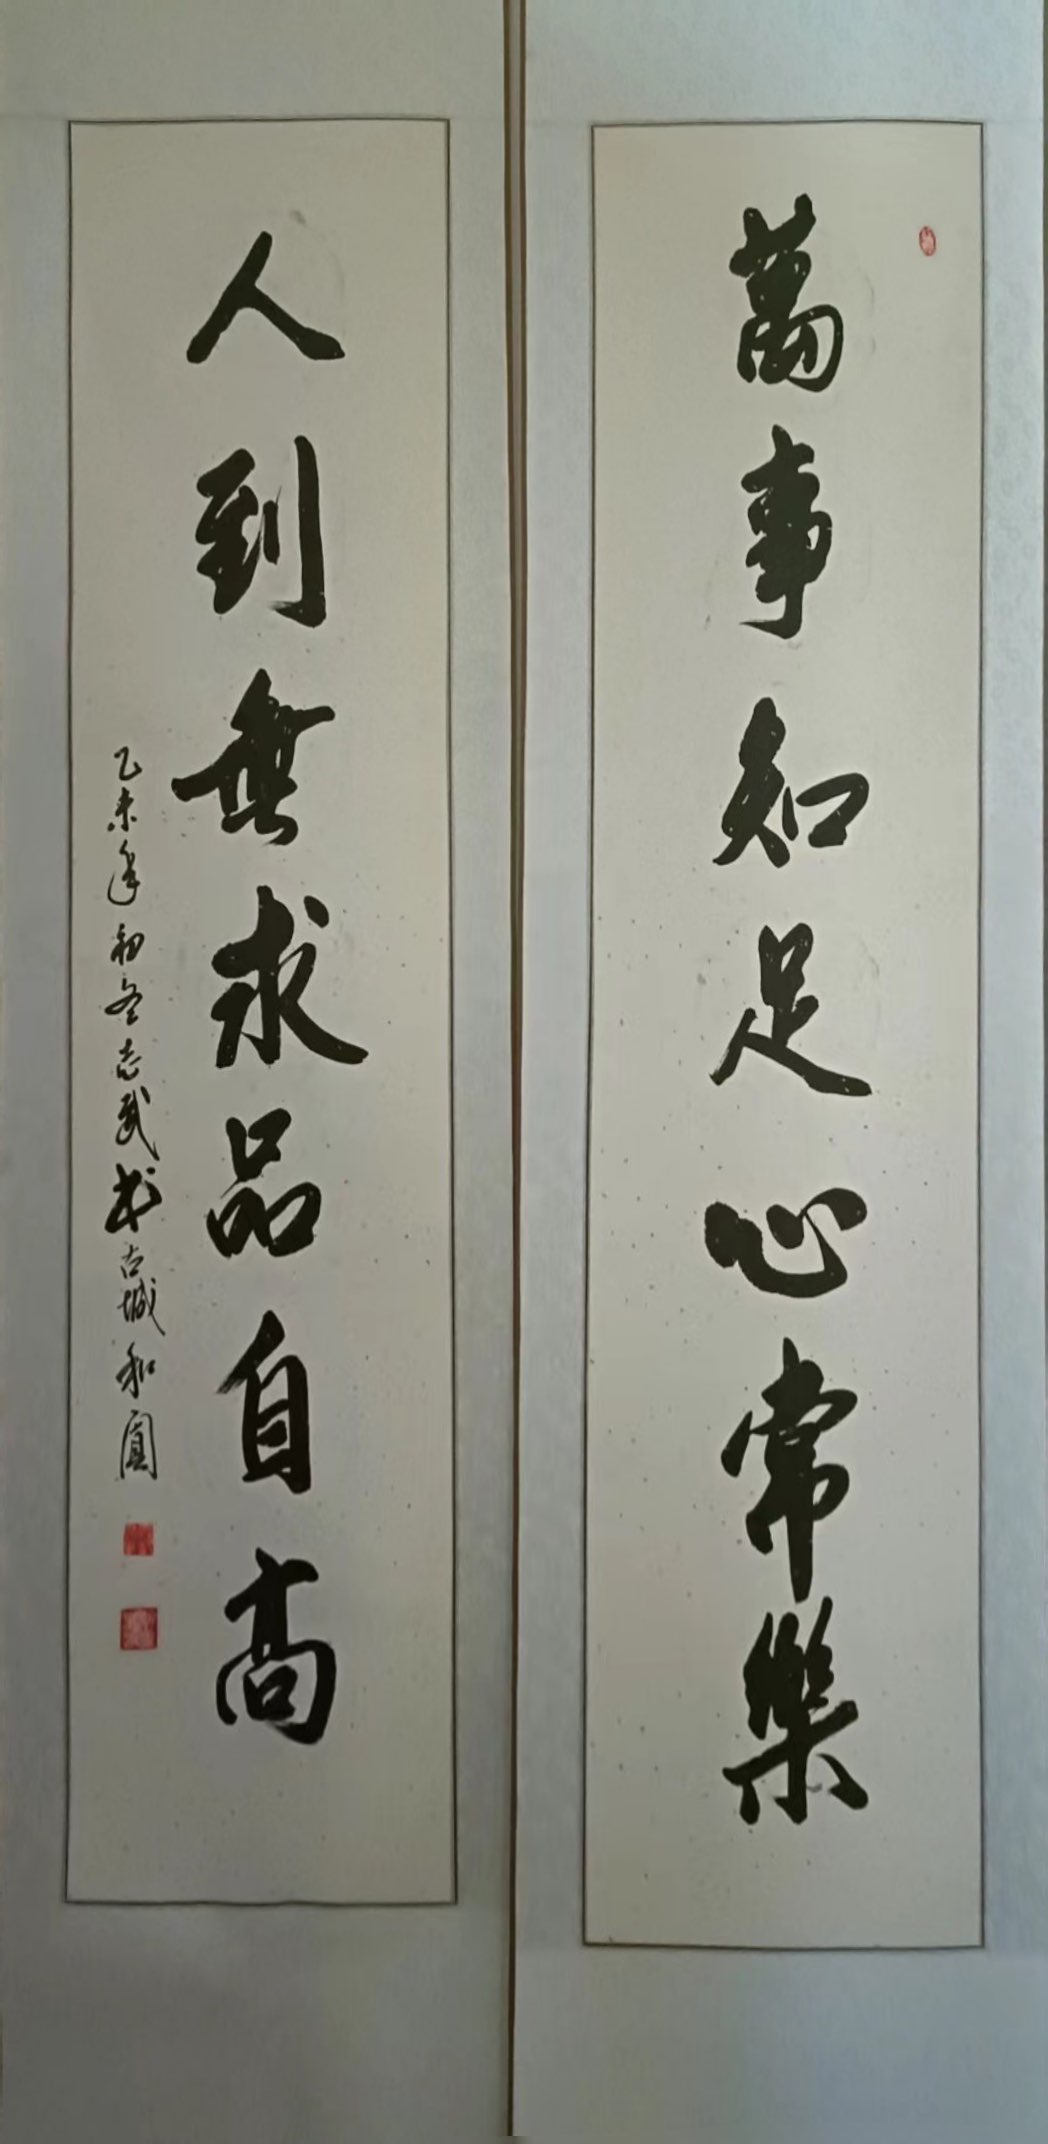 萬事知足心常樂
人到無求品自高
乙未年初冬志武书古城和園